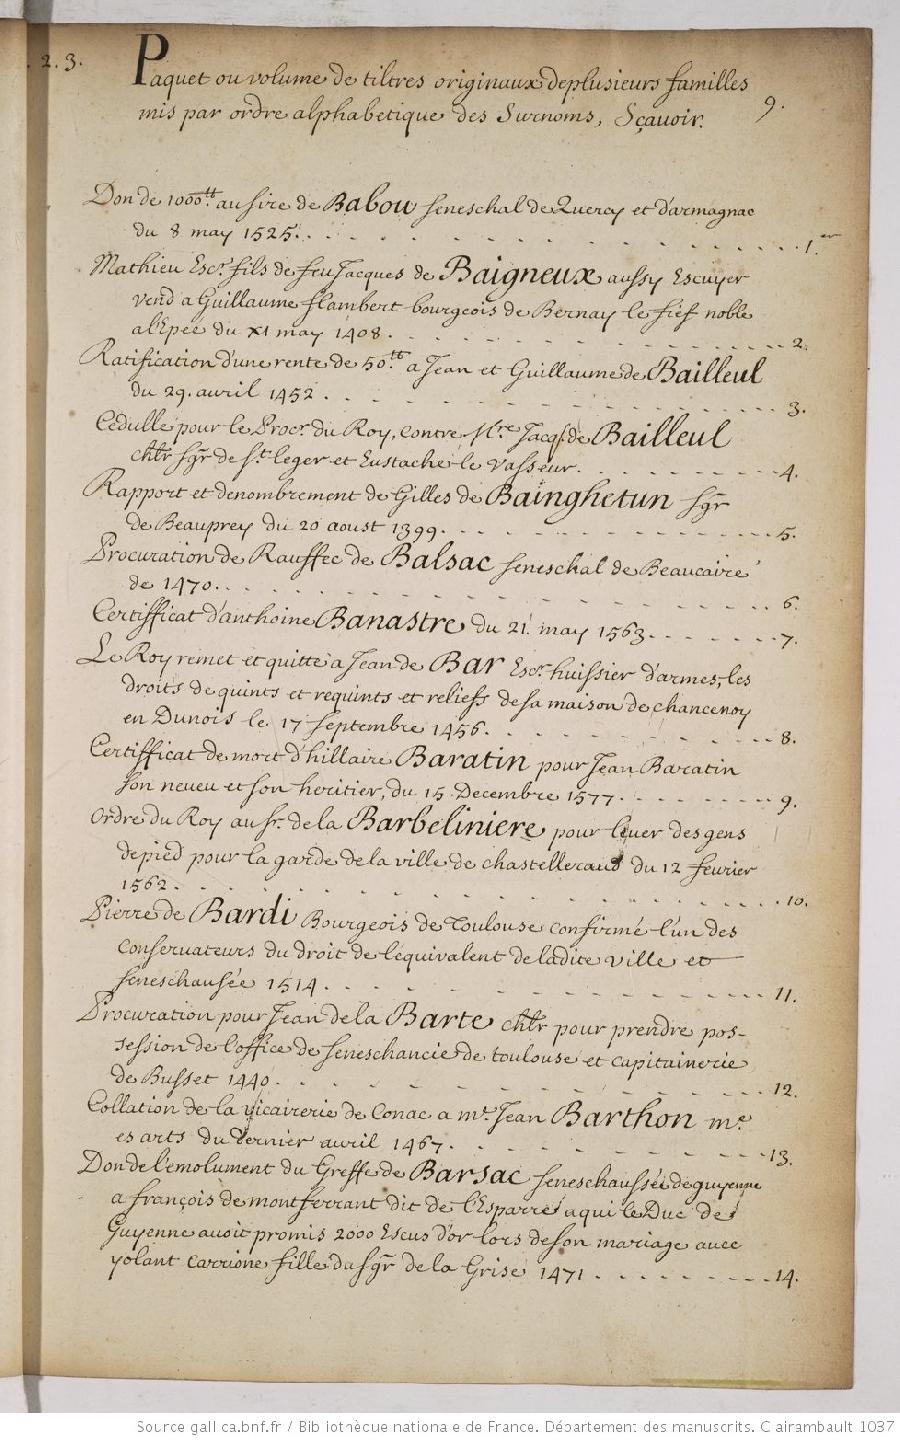 . 2. 3.
Paquet ou volume de tiltres originaux de plusieurs familles
mis par ordre alphabetique des Surnoms, Sçavoir. 9.
Don de 1000.tt au sire de Babou seneschal de Quercy et d'armagnac
du 8 may 1525. . . . . . . . . . . . . . 1.er
Mathieu Escr. fils de feu Jacques de Baigneux aussy Escuyer
vend a Guillaume flambert bourgeois de Bernay le fief noble
a l'Epée du XI may 1408. . . . . . . . . . . . 2.
Ratification d'une rente de 50.tt a Jean et Guillaume de Bailleul
du 29. avril 1452 . . . . . . . . . . . . . 3.
Cedulle pour le Procr. du Roy, contre Mre. Jacq. de Bailleul
chlr sgr de St. leger et Eustache le Vasseur. . . . . . . . 4.
Rapport et denombrement de Gilles de Bainghetun sgr
de Beauprey du 20 aoust 1399. . . . . . . . . . 5.
Procuration de Rauffec de Balsac seneschal de Beaucaire
de 1470. . . . . . . . . . . . . . . 6.
Certifficat d'anthoine Banastre du 21. may 1563. . . . . . 7.
Le Roy remet et quitte a Jean de Bar Escr. huissier d'armes, les
droits de quints et requints et reliefs de sa maison de chancenoy
en Dunois le 17 septembre 1456. . . . . . . . . . 8.
Certifficat de mort d'hillaire Baratin pour Jean Baratin
son neveu et son heritier, du 15 Decembre 1577. . . . . . 9.
Ordre du Roy au sr. de la Barbeliniere pour lever des gens
de pied pour la garde de la ville de chastelleraud du 12 fevrier
1562. . . . . . . . . . . . . . . . 10.
Pierre de Bardi Bourgeois de Toulouse confirmé l'un des
conservateurs du droit de l'equivalent de ladite ville et
seneschausée 1514. . . . . . . . . . . . . 11.
Procuration pour Jean de la Barte chlr pour prendre pos-
session de l'office de seneschancie de toulouse et capitainerie
de Busset 1440. . . . . . . . . . . . . . 12.
Collation de la vicairerie de Conac a me. Jean Barthon me.
es arts du dernier avril 1467. . . . . . . . . . 13.
Don de l'emolument du Greffe de Barsac seneschaussée de guyenne
a françois de montferrant dit de l'Esparre a qui le Duc de
Guyenne avoit promis 2000 Escus d'or lors de son mariage avec
yolant Carrione fille du sgr de la Grise 1471 . . . . . . . 14.
Source gallica.bnf.fr / Bibliothèque nationale de France. Département des manuscrits. Clairambault 1037